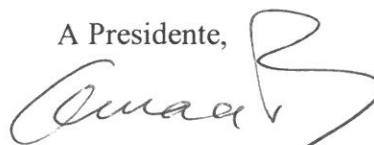 A Presidente,